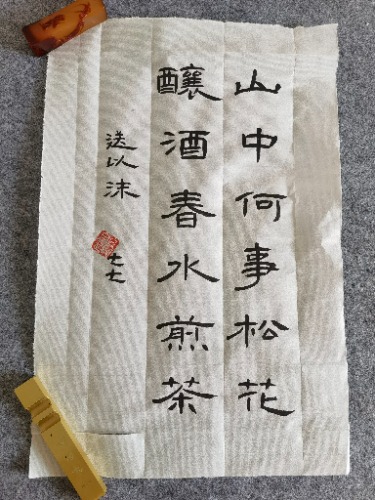 山中何事松花
釀酒春水煎茶
送以沫
七七